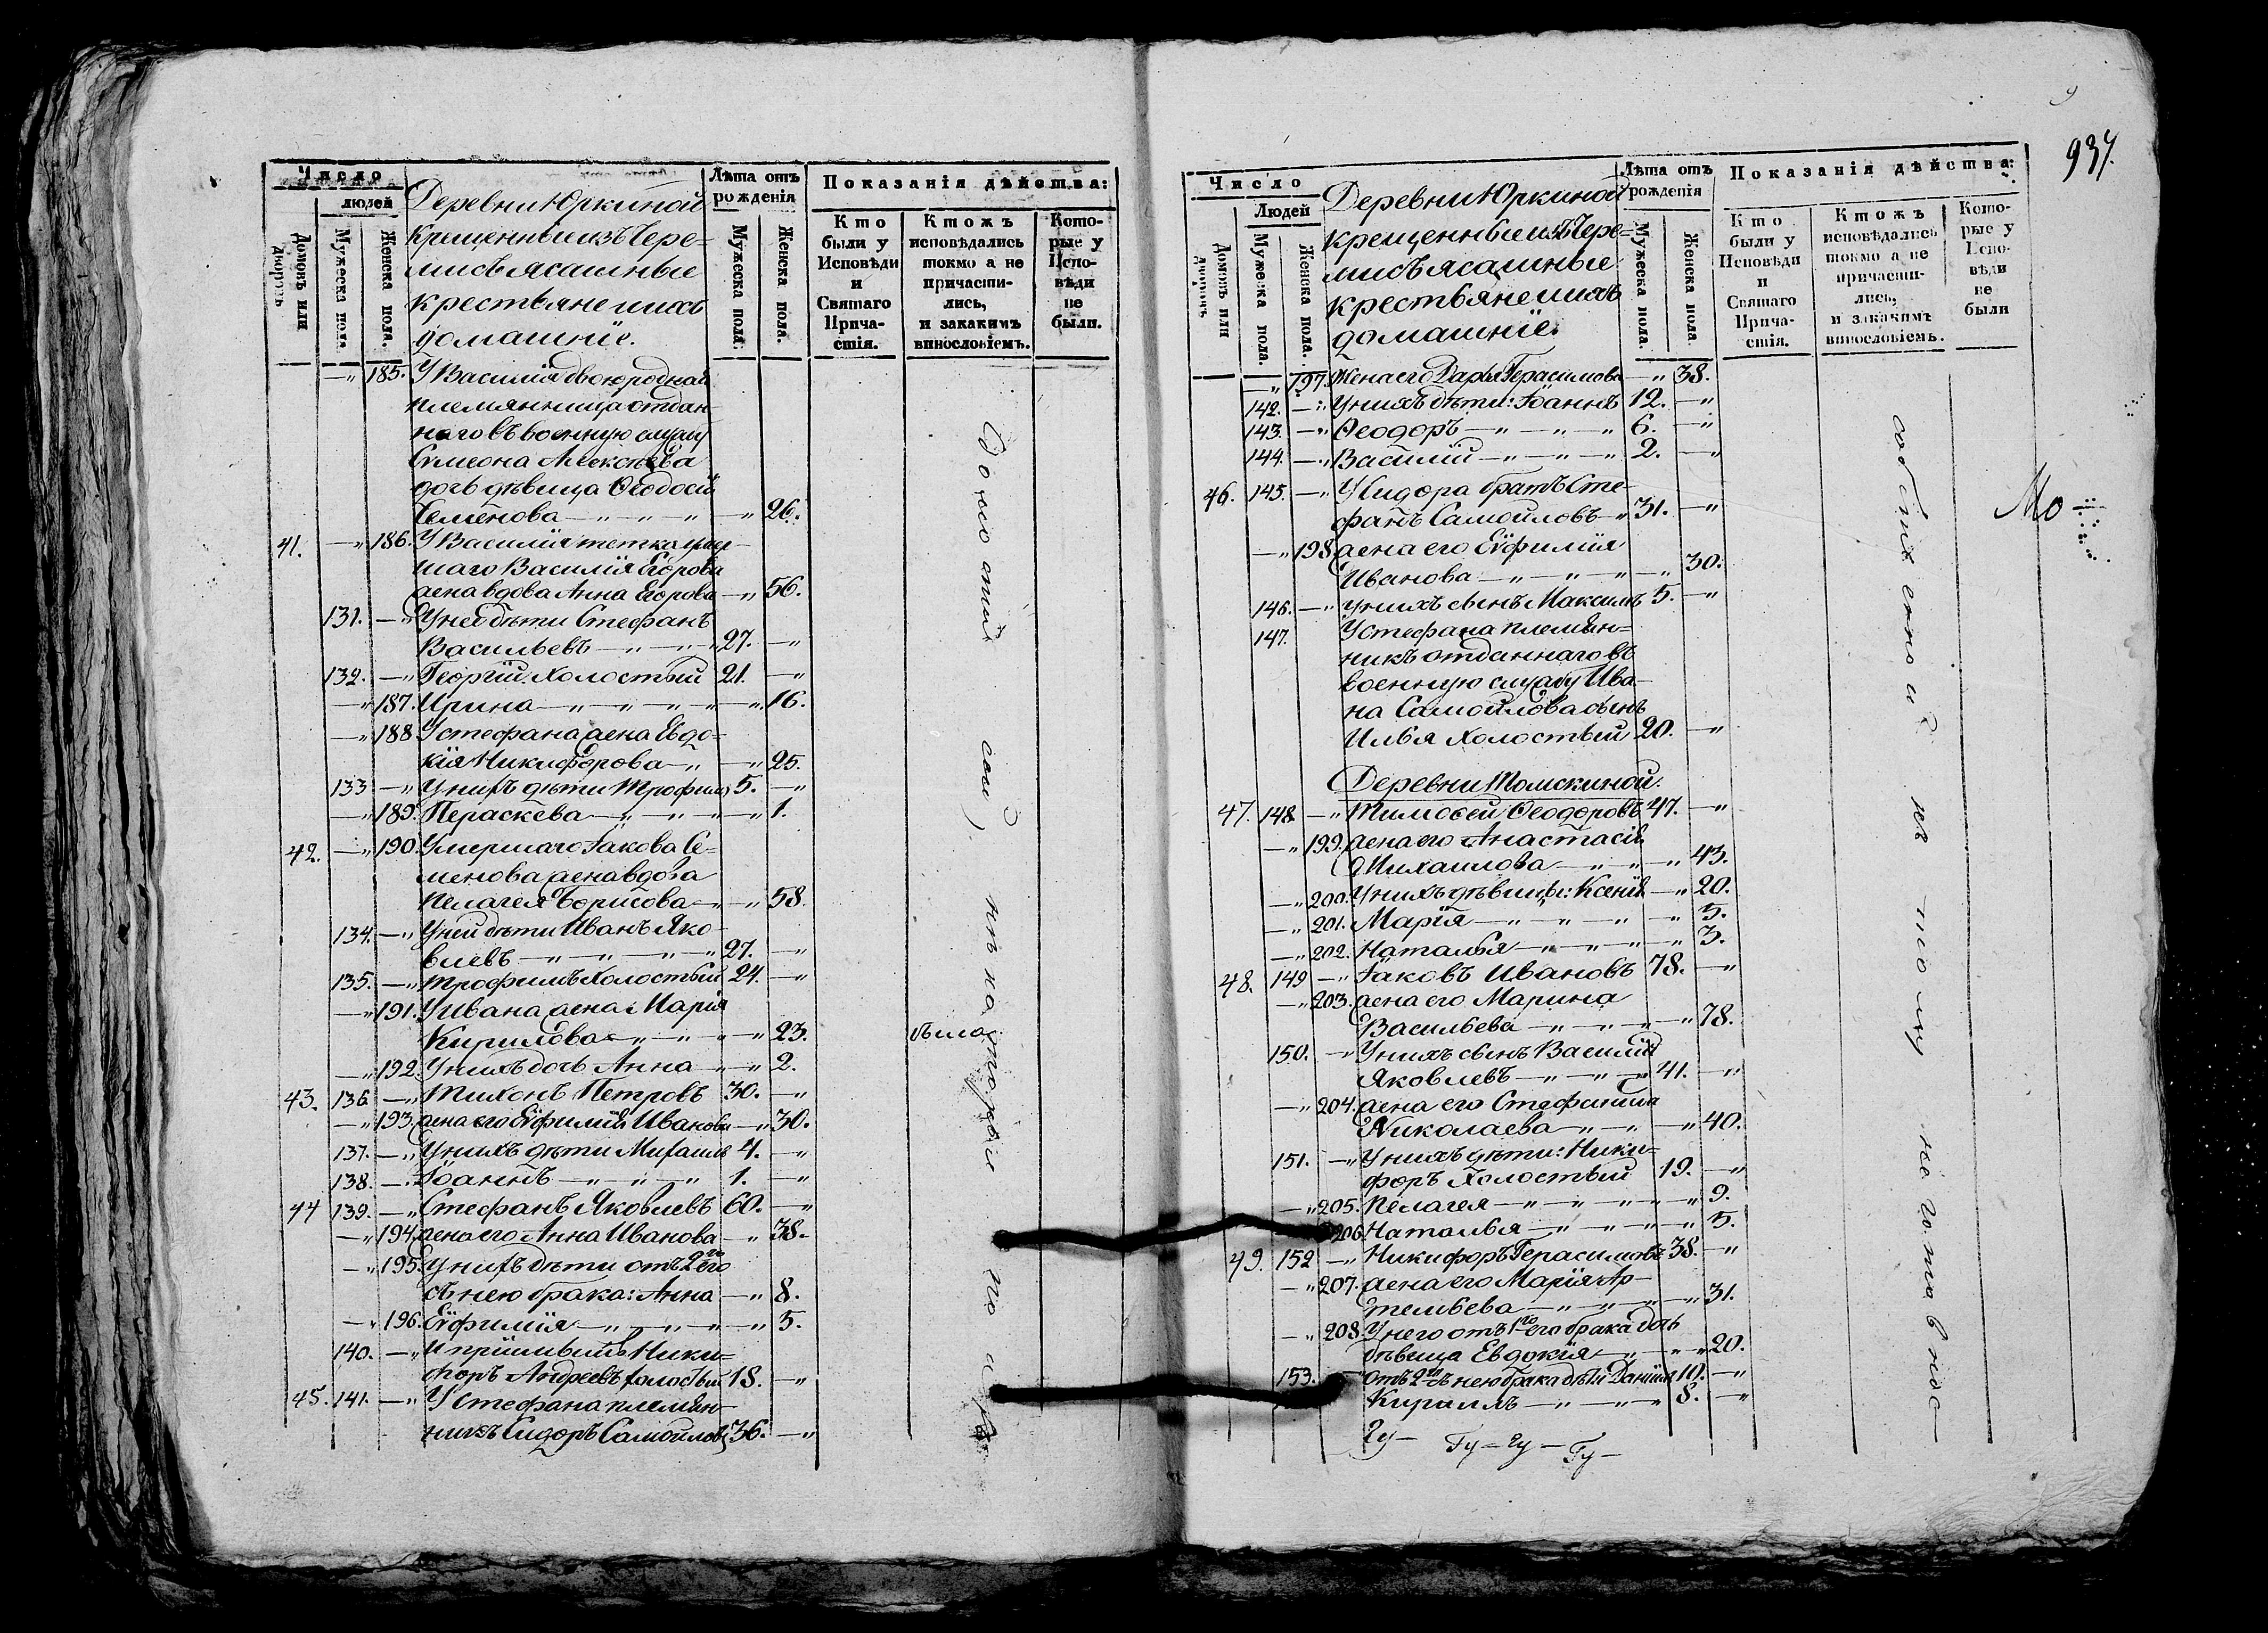 Число
людей
Домовъ или дворовъ
Мужеска пола.
Женска пола.
Деревни Юркиной
крещенные изъ Чере-
мисъ ясашные
крестьяне и ихъ
домашніе.
Лѣта отъ рожденія
Мужеска пола.
Женска пола.
Показанія дѣйства:
Кто были у Исповѣди и Святаго Прича-стія.
Ктожъ исповѣдались токмо а не причасти-лись, и закакимъ винословіемъ.
Кото-рые у Испо-вѣди не были.
—„ 185. У Василія двоюродная
племянница отдан-
наго въ военную службу
Симеона Алексѣева
дочь дѣвица Ѳеодосія
Семенова —„—„—„ —„ 26.
41. —„ 186. У Василія тетка умер-
шаго Василія Егорова
жена вдова Анна Егорова —„ 56.
131. —„ У нее дѣти Стефанъ
Васильевъ —„—„—„ 27. —„
132. —„ Георгій холостый 21. —„
—„ 187. Ирина —„—„—„—„ —„ 16.
—„ 188 У Стефана жена Евдо-
кія Никифорова —„ —„ 25.
133 —„ У нихъ дѣти Трофимъ 5. —„
—„ 189. Пераскева —„—„—„ 1.
42. —„ 190. Умершаго Іакова Се-
менова жена вдова
Пелагея Борисова —„ —„ 58.
134. —„ У ней дѣти Иванъ Яко-
влевъ —„—„—„—„ 27. —„
135. —„ Трофимъ холостый 24. —„
—„ 191. У Ивана жена Марія
Кирилова —„—„—„ —„ 23.
—„ 192. У нихъ дочь Анна —„ —„ 2.
43. 136 —„ Тихонъ Петровъ 30. —„
—„ 193. жена его Евфимія Иванова —„ 30.
137. —„ У нихъ дѣти Михаилъ 4. —„
138. —„ Іоаннъ —„—„—„ 1. —„
44 139. —„ Стефанъ Яковлевъ 60. —„
—„ 194. жена его Анна Иванова —„ 38.
—„ 195. У нихъ дѣти отъ 2го его
съ нею брака: Анна —„ 8.
—„ 196. Евфимія —„—„—„ —„ 5.
140. —„ И пріимышъ Ники-
форъ Андреевъ холостый 18. —„
45. 141. —„ У Стефана племян-
никъ Сидоръ Самойловъ 36. —„
было
937.
Число
Людей
Домовъ или дворовъ
Мужеска пола.
Женска пола.
Деревни Юркиной
крещенные изъ Чере-
мисъ ясашные
крестьяне и ихъ
домашніе.
Лѣта отъ рожденія
Мужеска пола.
Женска пола.
Показанія дѣйства:
Кто были у Исповѣди и Святаго Прича-стія.
Ктожъ исповѣдались токмо а не причасти-лись, и закакимъ винословіемъ.
Кото-рые у Испо-вѣди не были
—„ 197. Жена его Дарья Герасимова —„ 38.
142. —„ У нихъ дѣти: Іоаннъ 12. —„
143. —„ Ѳеодоръ —„—„—„ 6. —„
144. —„ Василій —„—„—„ 2. —„
46. 145. —„ У Сидора братъ Сте-
фанъ Самойловъ —„ 31. —„
—„ 198 жена его Евфимія
Иванова —„—„—„ —„ 30.
146. —„ У нихъ сынъ Максимъ 5. —„
147. У Стефана племян-
никъ отданнаго въ
военную службу Ива-
на Самойлова сынъ
Илья холостый 20. —„
Деревни Томскиной.
47. 148 —„ Тимоѳей Ѳеодоровъ 47. —„
—„ 199. жена его Анастасія
Михаилова —„—„ —„ 43.
—„ 200. У нихъ дѣвицы: Ксенія —„ 20.
—„ 201. Марія —„—„—„ —„ 5.
—„ 202. Наталья —„—„—„ —„ 3.
48. 149 —„ Іаковъ Ивановъ 78. —„
—„ 203. жена его Марина
Васильева —„—„—„ —„ 78.
150. —„ У нихъ сынъ Василій
Яковлевъ —„—„—„ 41. —„
—„ 204. жена его Стефанида
Николаева —„—„ —„ 40.
151. —„ У нихъ дѣти: Ники-
форъ холостый 19. —„
—„ 205. Пелагея —„—„—„ —„ 9.
206. Наталья —„—„—„ —„ 5.
49. 152 —„ Никифоръ Герасимовъ 38. —„
—„ 207. жена его Марія Ар-
темьева —„—„—„ —„ 31.
—„ 208. У него отъ 1го его брака дочь
дѣвица Евдокія —„ —„ 20.
153. — отъ 2го съ нею брака дѣти Даніилъ 10. —„
Кириллъ —„—„—„ 8. —„
Мо